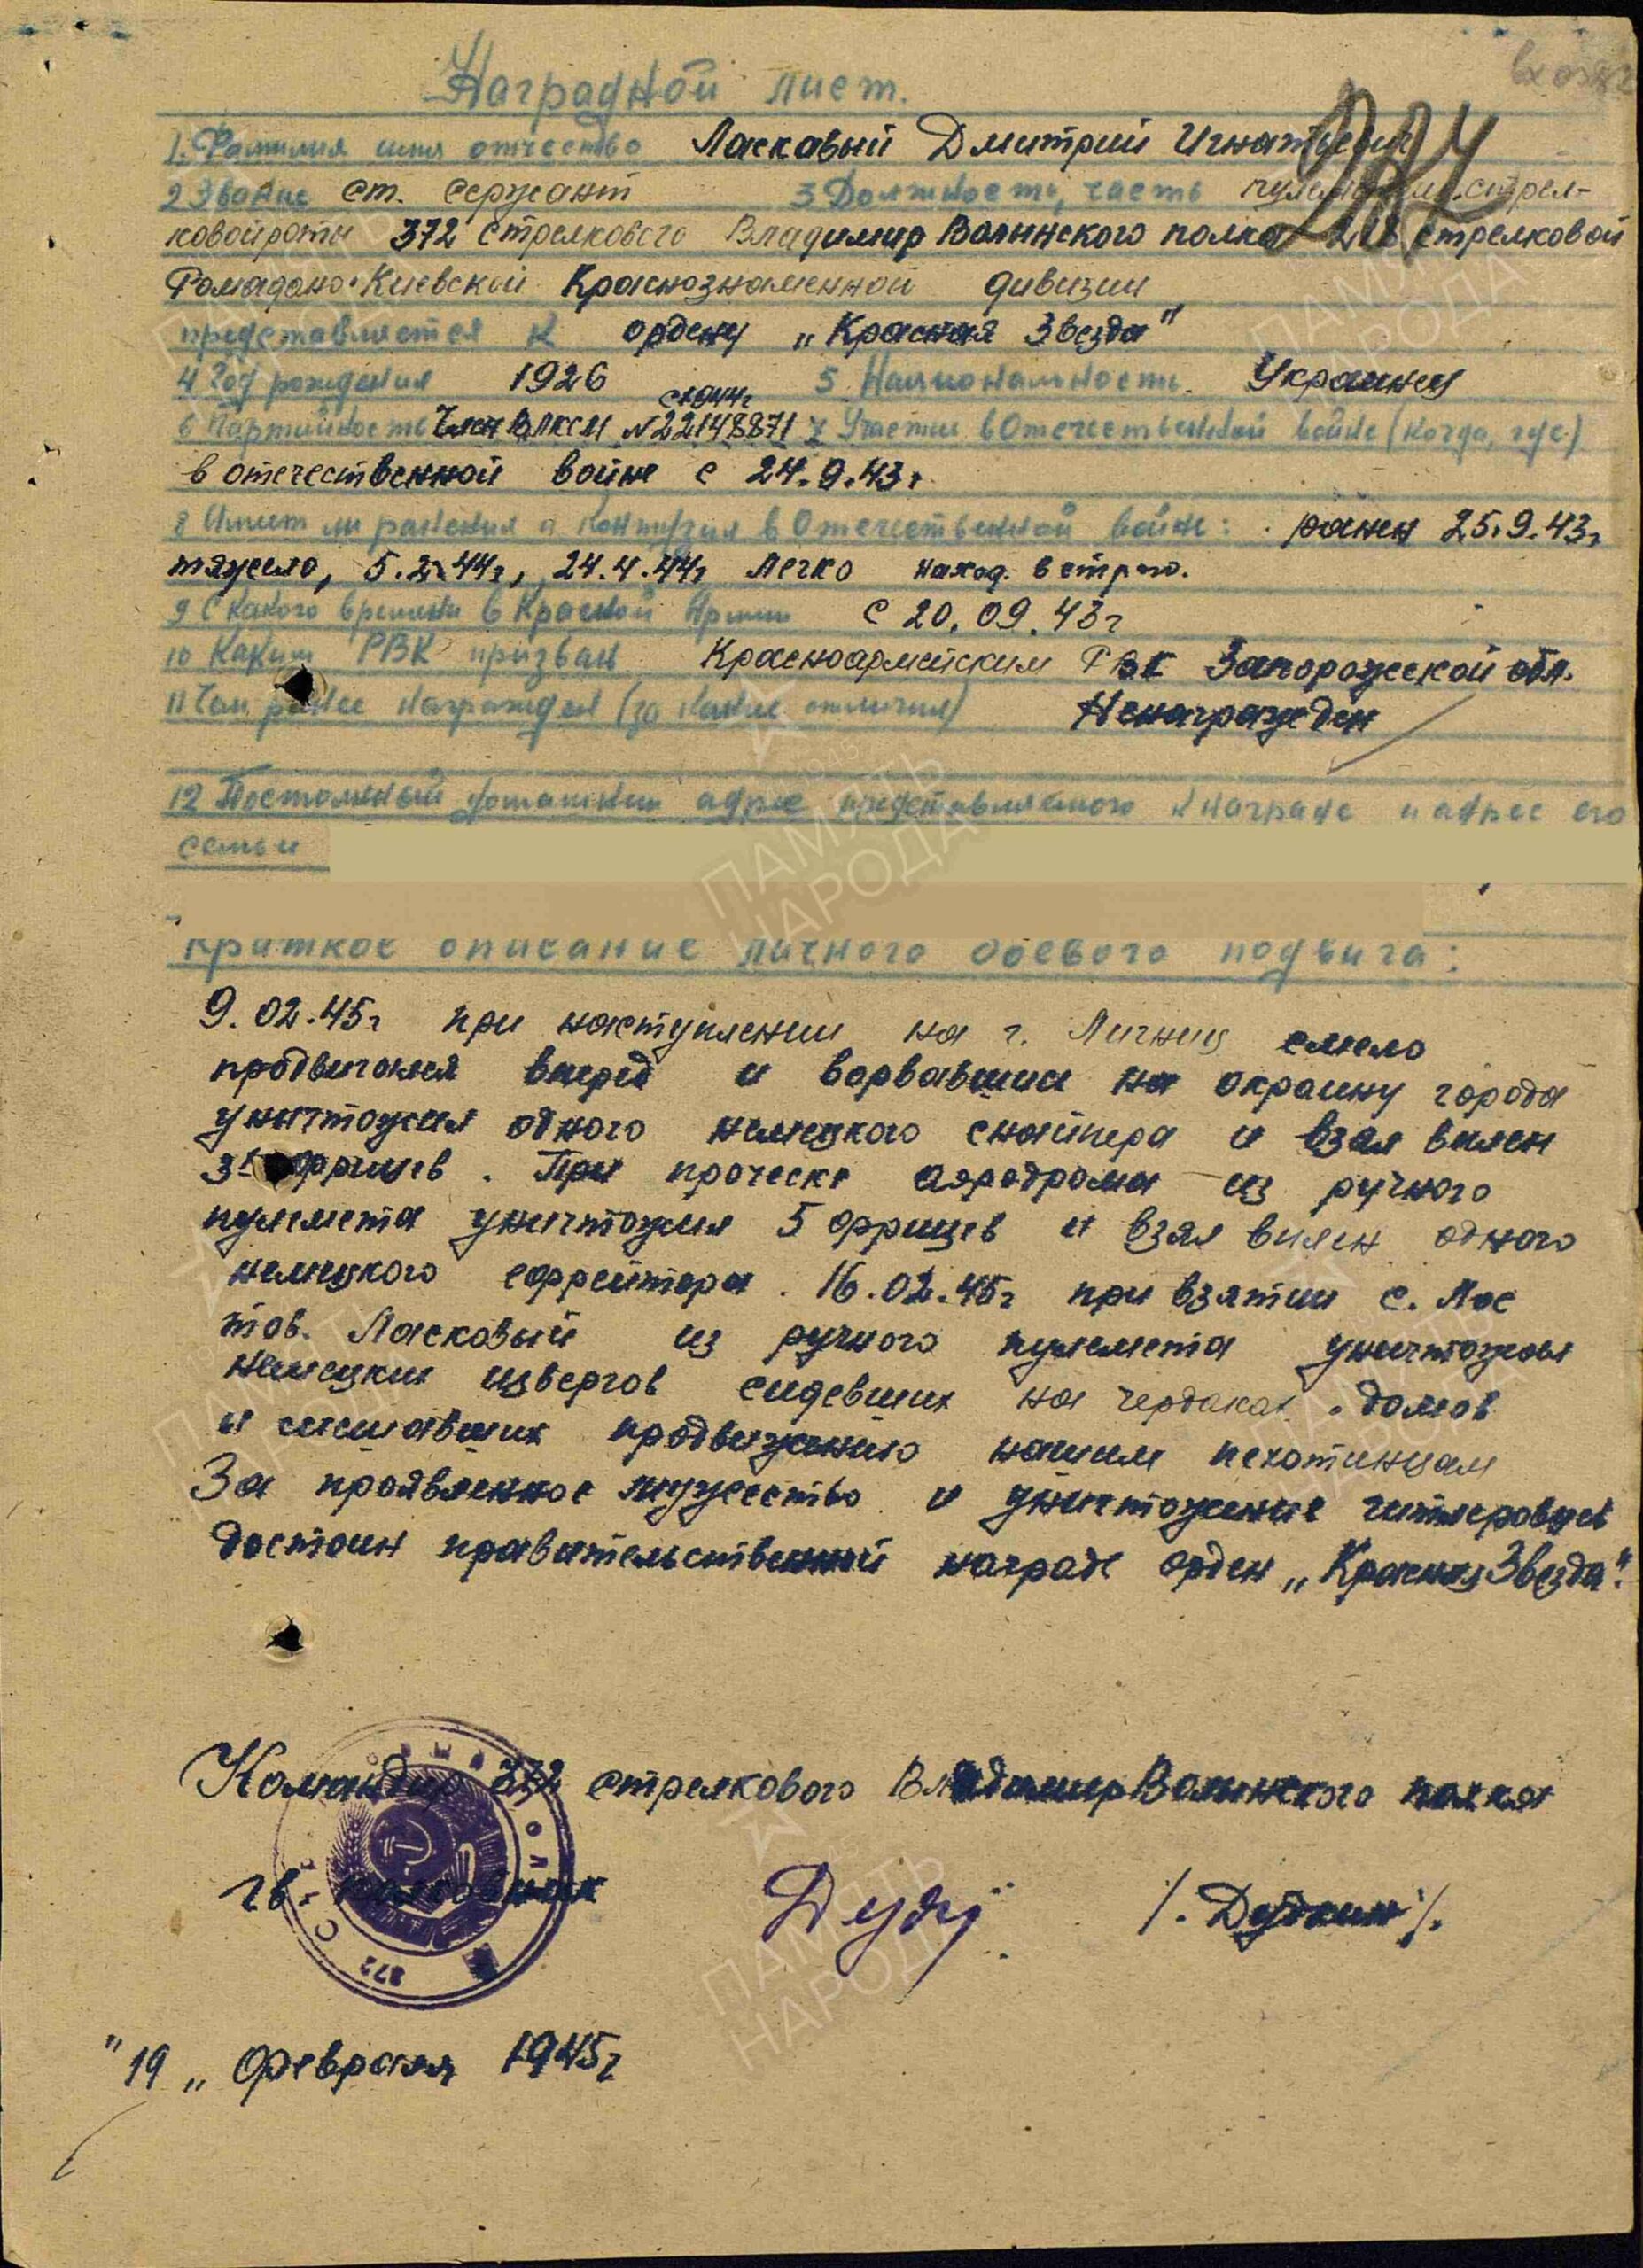 Наградной лист.
1. Фамилия имя отчество Ласкавый Дмитрий Игнатьевич
2 Звание ст. сержант 3 Должность, часть стрел-
ковой роты 372 стрелкового Владимир Волынского полка 218 стрелковой
Ромадано-Киевской Краснознаменной дивизии
представляется к ордену „Красная Звезда"
4 Год рождения 1926 5 Национальность. Украинец
с 1944г
6 Партийность Член ВЛКСМ №22148871 7 Участие в Отечественной войне (когда, где)
в отечественной войне с 24.9.43г
8 Имеет ли ранения и контузия в Отечественной войне: ранен 25.9.43г
тяжело, 5.2.44г, 24.4.44г легко наход. в строю.
9 С какого времени в Красной Армии с 20.09.43г
10 Каким РВК призван Красноармейским РВК Запорожской обл.
11 Чем ранее награжден (за какие отличия) Ненагражден
12 Постоянный домашний адрес представляемого к награде и адрес его
семьи
Краткое описание личного боевого подвига:
9.02.45г при наступлении на г. Лигниц смело
продвигался вперед и ворвавшись на окраину города
уничтожил одного немецкого снайпера и взял вплен
3х фрицев. При проческе аэродрома из ручного
пулемета уничтожил 5 фрицев и взял вплен одного
немецкого ефрейтора. 16.02.45г при взятии с. Лос
тов. Ласковый из ручного пулемета уничтожал
немецких извергов сидевших на чердаках домов
и мешавших продвижению нашим пехотинцам
За проявленное мужество и уничтожение гитлеровцев
достоин правительственной награде орден „Красная Звезда".
Командир 372 стрелкового Владимир Волынского полка
гв. /. Дудкин /.
372
"19„ Февраля 1945г
ПАМЯТЬ
НАРОДА